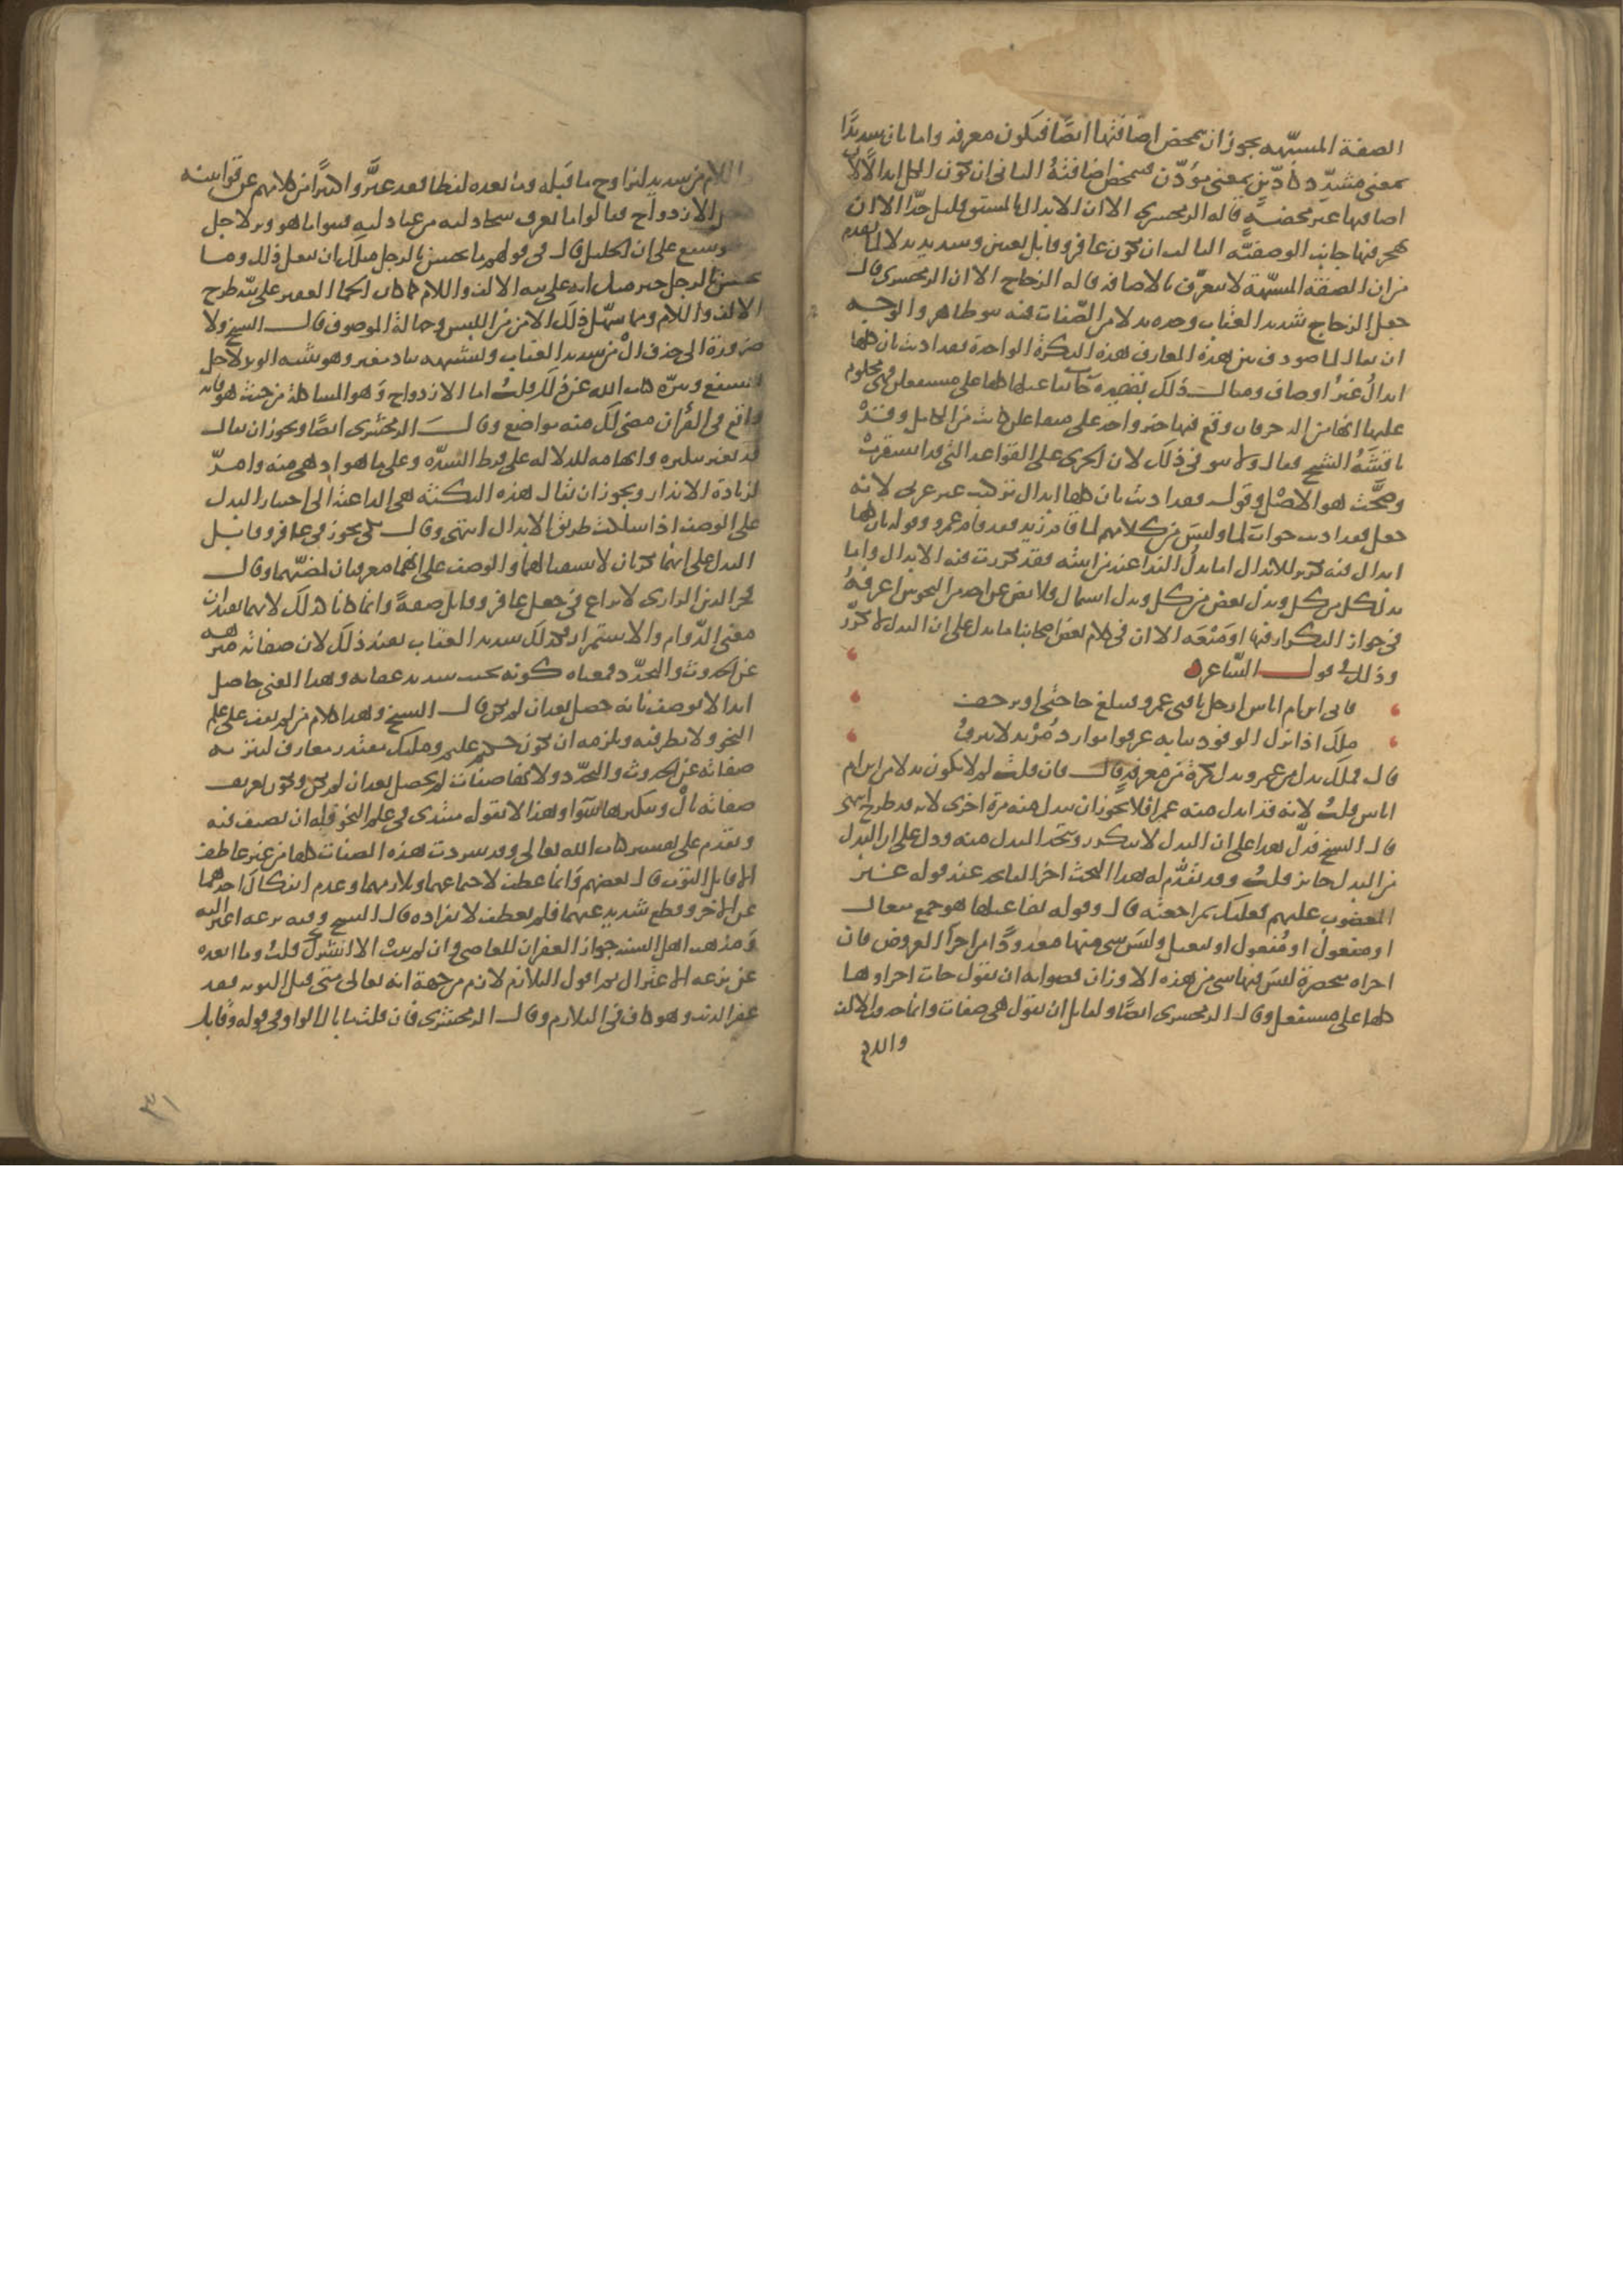 الصفة المشبهة يجوز ان تتمحض اضافتها ايضا فيكون معرفة واما بان شديدا
بمعنى مشدد كاذين بمعنى مؤذن فتتمحض اضافته الثاني ان تكون الكل ابدالا لان
اضافتها غير محضة قاله الزمخشري الا ان الابدال بالمشتق قليل جدا الا ان
يهجر فيها جانب الوصفية الثالث ان تكون غافر وقابل نعتين وشديد بدلا لما تقدم
من ان الصفة المشبهة لا تتعرف بالاضافة قاله الزجاج الا ان الزمخشري قال
جعل الزجاج شديد العقاب وحده بدلا من الصفات فيه نبو ظاهر والوجه
ان يقال لما صودف بين هذه المعارف هذه النكرة الواحدة فقد اذنت بان كلها
ابدال غير اوصاف ومثال ذلك قصيدة جاءت تفاعيلها كلها على مستفعلن فهي محكوم
عليها انها من الرجز فان وقع فيها جزء واحد على متفاعلن كانت من الكامل وقد
ناقشه الشيخ فقال ولا نبو في ذلك لان الجري على القواعد التي قد استقرت
وصحت هو الاصل وقوله فقد اذنت بان كلها ابدال تركيب غير عربي لانه
جعل فقد اذنت جواب لما وليس من كلامهم لما قام زيد فقد قام عمرو وقوله بان كلها
ابدال فيه تكرير للابدال اما بدل البداء عند من اثبته فقد تكررت فيه الابدال واما
بدل كل من كل وبدل بعض من كل وبدل اشتمال فلا نص عن احد من النحويين اعرفه
في جواز التكرار فيها او منعه الا ان في كلام بعض اصحابنا ما يدل على ان البدل لا يكرر
وذلك في قول الشاعر
فالى ابن ام اناس ارحل ناقتي عمرو فتبلغ حاجتي او تزحف
ملك اذا نزل الوفود ببابه عرفوا موارد مزبد لا ينزف
قال فملك بدل من عمرو بدل نكرة من معرفة قال فان قلت لم لا يكون بدلا من ابن ام
اناس قلت لانه قد ابدل منه عمرا فلا يجوز ان يبدل منه مرة اخرى لانه قد طرح انتهى
قال الشيخ فدل هذا على ان البدل لا يتكرر ويتحد المبدل منه ودل على ان البدل
من البدل جائز قلت وقد تقدم له هذا البحث اخر الفاتحة عند قوله غير
المغضوب عليهم فعليك بمراجعته قال وقوله تفاعيلها هو جمع تفعال
او تفعول او تفعيل وليس شيء منها معدودا من اجزاء العروض فان
اجزاءه منحصرة ليس فيها شيء من هذه الاوزان فصوابه ان تقول جاءت اجزاؤها
كلها على مستفعلن وقال الزمخشري ايضا ولقائل ان يقول هي صفات وانما حذف الالف
واللام
واللام من شديد ليزاوج ما قبله وما بعده لفظا فقد غيروا كثيرا من كلامهم عن قوانينه
لاجل الازدواج فقالوا ما يعرف سحادليه من عنادليه فثنوا ما هو وتر لاجل
ما هو شفع على ان الخليل قال في قولهم ما يحسن بالرجل مثلك ان يفعل ذلك وما
يحسن بالرجل خير منك انه على نية الالف واللام كما كان الجماء الغفير على نية طرح
الالف واللام ومما سهل ذلك الامن من اللبس وجهالة الموصوف قال الشيخ ولا
ضرورة الى حذف ال من شديد العقاب وتشبيهه بنادر مغير وهو تثنية الوتر لاجل
الشفع وتنزه كتاب الله عن ذلك قلت اما الازدواج وهو المشاكلة من حيث هو فانه
واقع في القرآن مضى لك منه مواضع وقال الزمخشري ايضا ويجوز ان يقال
قد تعمد تنكيره وابهامه للدلالة على فرط الشدة وعلى ما هو ادهى منه وامر
لزيادة الانذار ويجوز ان يقال هذه النكتة هي الداعية الى اختيار البدل
على الوصف اذا سلكت طريق الابدال انتهى وقال مكي يجوز في غافر وقابل
البدل على انهما نكرتان لاستقبالهما والوصف على انهما معرفتان لمضيهما وقال
فخر الدين الرازي لا نزاع في جعل غافر وقابل صفة وانما كانا كذلك لانهما يفيدان
معنى الدوام والاستمرار فكذلك شديد العقاب يفيد ذلك لان صفاته منزهة
عن الحدوث والتجدد فمعناه كونه بحيث شديد عقابه وهذا المعنى حاصل
ابدا لا يوصف بانه حصل بعد ان لم يكن قال الشيخ وهذا كلام من لم يقف على علم
النحو ولا نظر فيه ويلزمه ان تكون حكيم عليم ومليك مقتدر معارف لتنزيه
صفاته عن الحدوث والتجدد ولانها صفات لم تحصل بعد ان لم تكن وتكون تعريف
صفاته بال وتنكيرها سواء وهذا لا يقوله مبتدئ في علم النحو فضلا ان يصنف فيه
ويقدم على تفسير كتاب الله تعالى وقد سردت هذه الصفات كلها من غير عاطف
الا قابل التوب قال بعضهم وانما عطف لاجتماعهما وتلازمهما وعدم انفكاك احدهما
عن الاخر وقطع شديد عنهما فلم يعطف لانفراده قال الشيخ وفيه نزعة اعتزالية
ومذهب اهل السنة جواز الغفران للعاصي وان لم يتب الا الشرك قلت وما ابعده
عن نزعة الاعتزال ثم اقول التلازم لازم من جهة انه تعالى متى قبل التوبة فقد
غفر الذنب وهو كاف في التلازم وقال الزمخشري فان قلت ما بال الواو في قوله وقابل
٣١